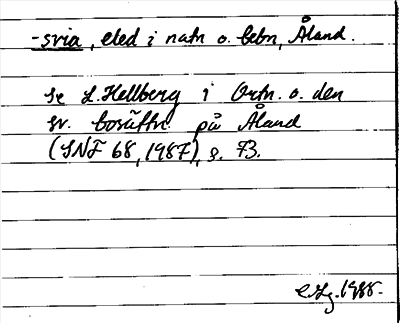 -svia, eled i natn o. bebn, Åland.
se L. Hellberg i Ortn. o. den
sv. bosättn. på Åland
(SNF 68, 1987), s. 73.
1988.